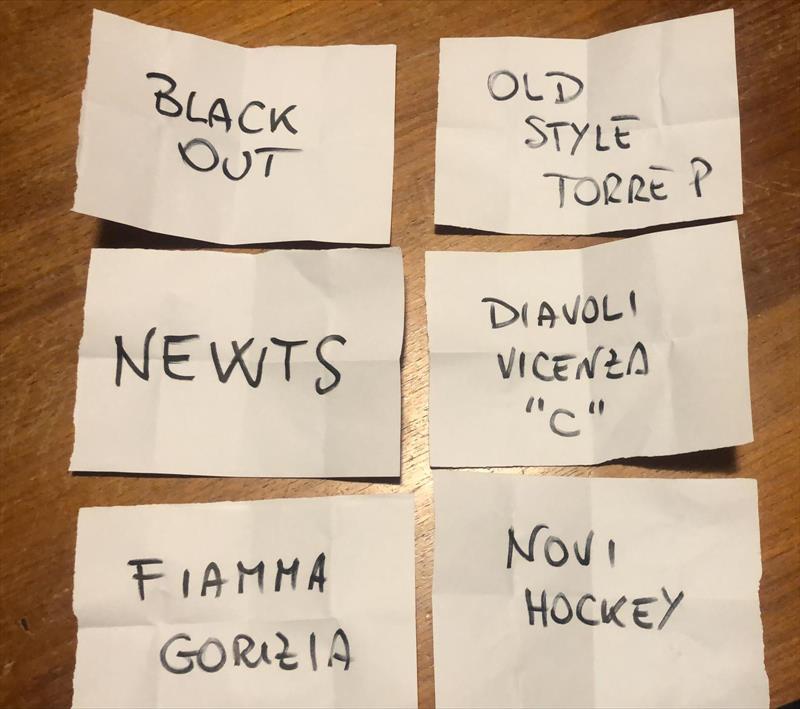 BLACK
OUT
OLD
STYLE
TORRE P
NEWTS
DIAVOLI
VICENZA
"C"
FIAMMA
GORIZIA
NOVI
HOCKEY